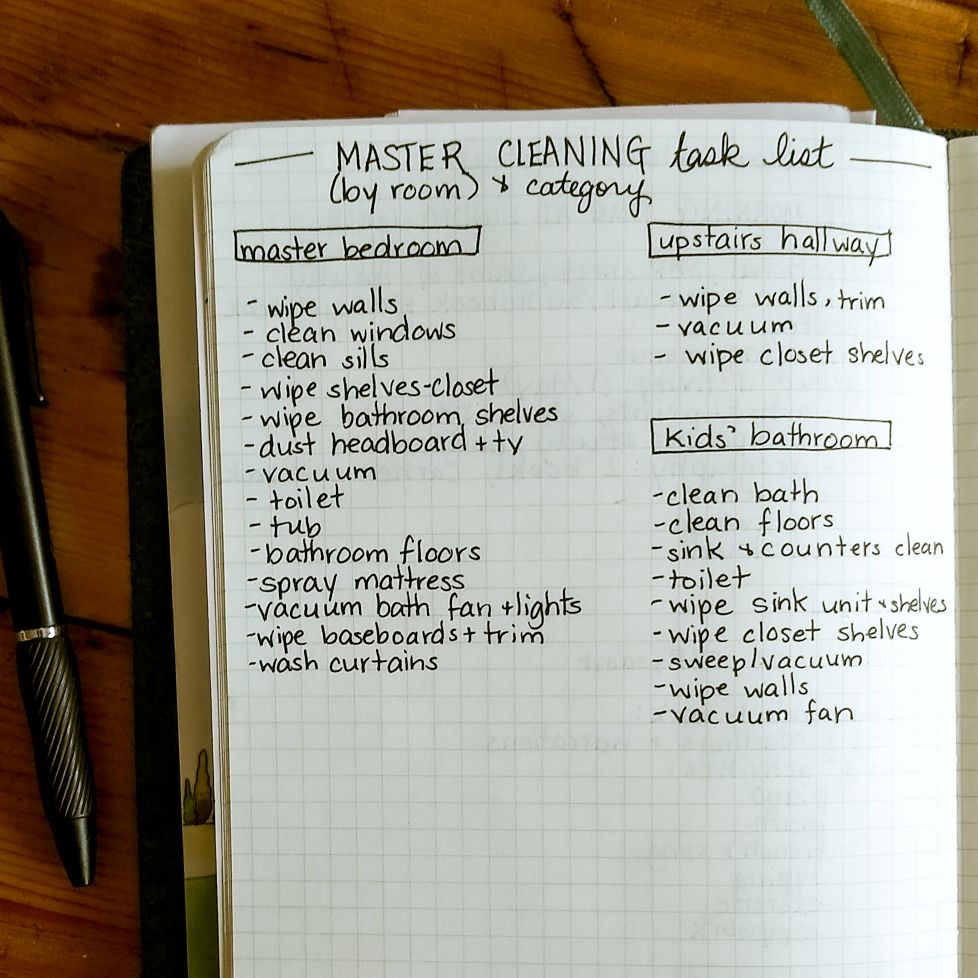 MASTER CLEANING task list
(by room) & category
master bedroom
- wipe walls
- clean windows
- clean sills
- wipe shelves-closet
- wipe bathroom shelves
- dust headboard + tv
- vacuum
- toilet
- tub
- bathroom floors
- spray mattress
- vacuum bath fan + lights
- wipe baseboards + trim
- wash curtains
upstairs hallway
- wipe walls, trim
- vacuum
- wipe closet shelves
Kids' bathroom
- clean bath
- clean floors
- sink & counters clean
- toilet
- wipe sink unit & shelves
- wipe closet shelves
- sweep/vacuum
- wipe walls
- vacuum fan